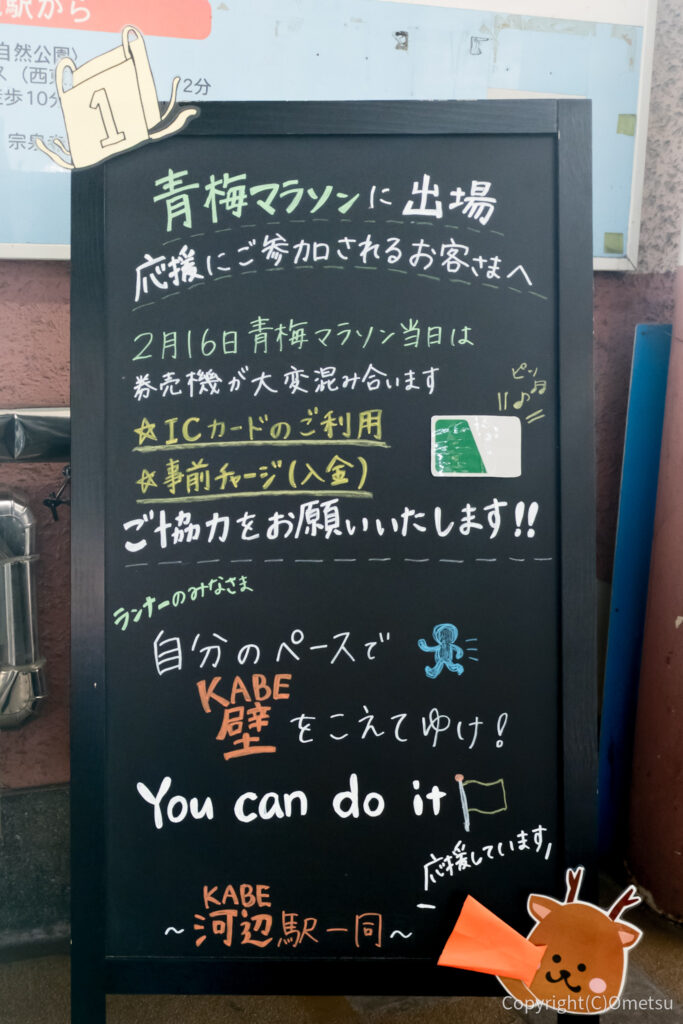 駅から
自然公園〉
ス（西東
徒歩10分
2分
宗泉寺
1
青梅マラソンに出場
応援にご参加されるお客さまへ
2月16日青梅マラソン当日は
券売機が大変混み合います
☆ICカードのご利用
ピッ♪♬
☆事前チャージ(入金)
ご協力をお願いいたします!!
ランナーのみなさま
自分のペースで
KABE
壁をこえてゆけ!
You can do it
応援しています♪
KABE
～河辺駅一同～
Copyright(C)Ometsu